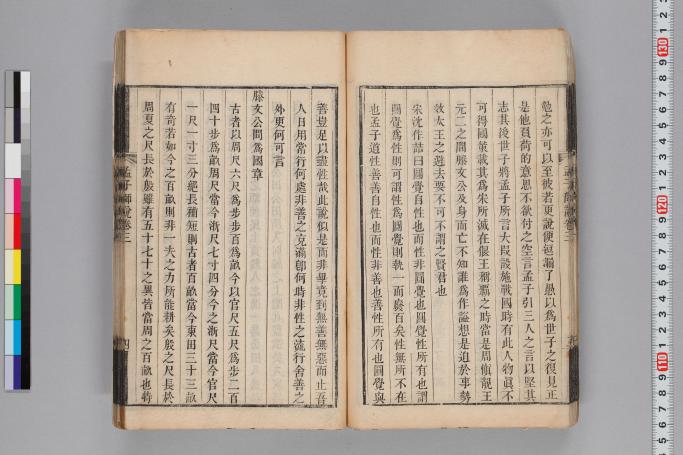 勉之亦可以至彼若更說便逗漏了愚以為世子之復見正
是他負荷的意思不欲付之空言孟子引三人之言以堅其
志其後世子將孟子所言大段設施戰國時有此人物眞不
可得國策載其為宋所滅在偃王稱霸之時當是周愼靚王
元二之間滕文公及身而亡不知誰為作諡想是迫於事勢
效太王之避去要不可不謂之賢君也
宋沈作喆曰圓覺自性也而性非圓覺也圓覺性所有也謂
圓覺為性則可謂性為圓覺則執一而廢百矣性無所不在
也孟子道性善善自性也而性非善也善性所有也圓覺與
善豈足以盡性哉此說似是而非畢竟到無善無惡而止吾
人日用常行何處非善之充滿卽何時非性之流行舍善之
外更何可言
滕文公問為國章
古者以周尺六尺為步步百為畝今以官尺五尺為步二百
四十步為畝周尺當今浙尺七寸四分今之浙尺當今官尺
一尺一寸三分絕長補短則古者百畝當今東田三十三畝
有奇若如今之百畝則非一夫之力所能耕矣殷之尺長於
周夏之尺長於殷雖有五十七十之異皆當周之百畝也特
孟子師說卷三
四